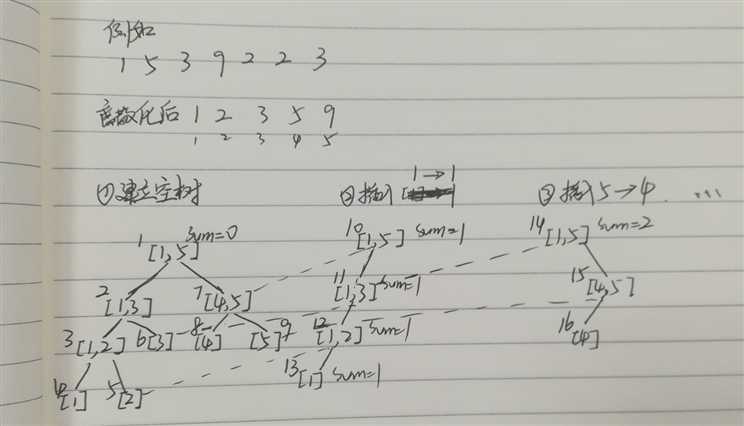 例如
1 5 3 9 2 2 3
离散化后 1 2 3 5 9
1 2 3 4 5
①建立空树 ②插入 1→1 ③插入5→4 ...
1 [1,5] sum=0 10 [1,5] sum=1 14 [1,5] sum=2
2 [1,3] 7 [4,5] 11 [1,3] sum=1 15 [4,5]
3 [1,2] 6 [3] 8 [4] [5] 9 12 [1,2] sum=1 16 [4]
4 [1] 5 [2] 13 [1] sum=1